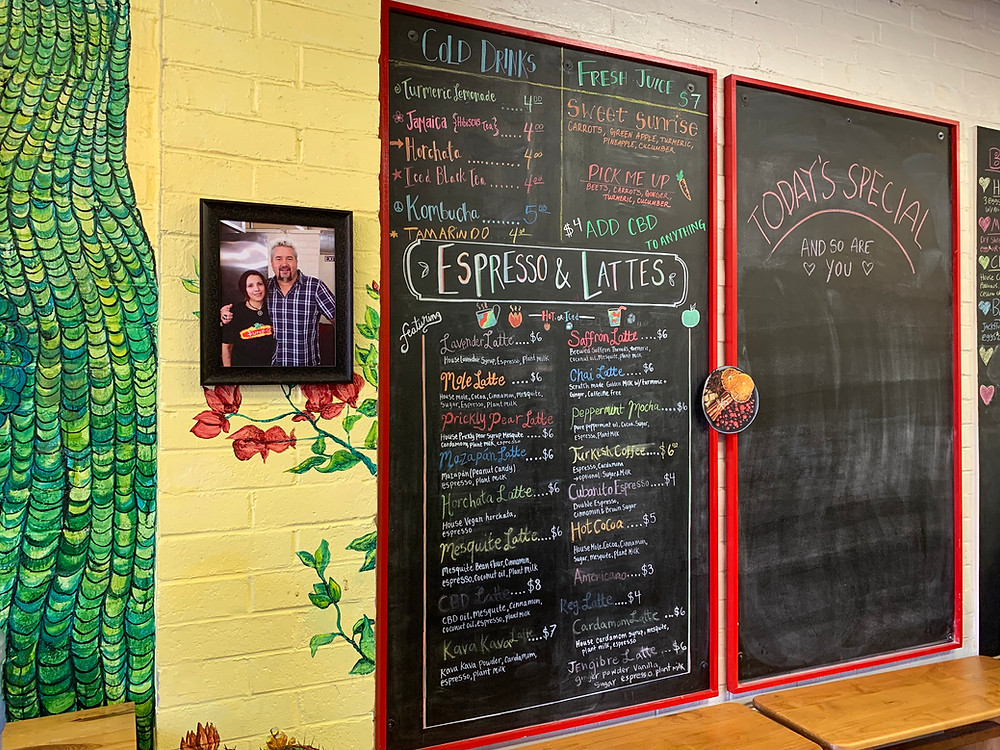 COLD DRINKS
Turmeric Lemonade .... 4.00
Jamaica {Hibiscus Tea} .... 4.00
Horchata .......... 4.00
Iced Black Tea ...... 4.00
Kombucha .... 5.00
TAMARINDO 4.00
FRESH JUICE $7
Sweet Sunrise
CARROTS, GREEN APPLE, TURMERIC,
PINEAPPLE, CUCUMBER
PICK ME UP
BEETS, CARROTS, GINGER,
TURMERIC, CUCUMBER
$4 ADD CBD
TO ANYTHING
ESPRESSO & LATTES
featuring
HOT or Iced
Lavender Latte .... $6
House Lavender Syrup, Espresso, Plant Milk
Mole Latte .... $6
House mole, Cocoa, Cinnamon, Mesquite,
Sugar, Espresso, Plant Milk
Prickly Pear Latte
House Prickly Pear Syrup Mesquite .... $6
Cardamom, plant milk, espresso
Mazapán Latte .... $6
Mazapán (Peanut Candy)
espresso, Plant Milk
Horchata Latte .... $6
House Vegan horchata,
espresso
Mesquite Latte .... $6
Mesquite Bean Flour, Cinnamon,
espresso, Coconut oil, Plant Milk
CBD Latte .... $8
CBD oil, Mesquite, Cinnamon,
coconut oil, espresso, plant Milk
Kava Kava Latte .. $7
Kava Kava Powder, Cardamom,
espresso, plant Milk
Saffron Latte .... $6
Brewed Saffron Threads, turmeric,
coconut oil, Mesquite, plant milk
Chai Latte .... $6
Scratch made Golden Milk w/ turmeric +
Ginger, Caffeine free
Peppermint Mocha .... $6
pure peppermint oil, Cocoa, Sugar,
Espresso, Plant Milk
Turkish Coffee .... $6.00
Espresso, Cardamom
→ optional Sugar & Milk
Cubanito Espresso .... $4
Double Espresso,
Cinnamon & Brown Sugar
Hot Cocoa .... $5
House Mole, Cocoa, Cinnamon,
Sugar, Mesquite, Plant Milk
Americano .... $3
Reg Latte .... $4
Cardamom Latte ... $6
House cardamom syrup, mesquite,
plant milk, espresso
Jengibre Latte .... $6
ginger powder vanilla,
sugar espresso, plant milk
TODAY'S SPECIAL
AND SO ARE
YOU